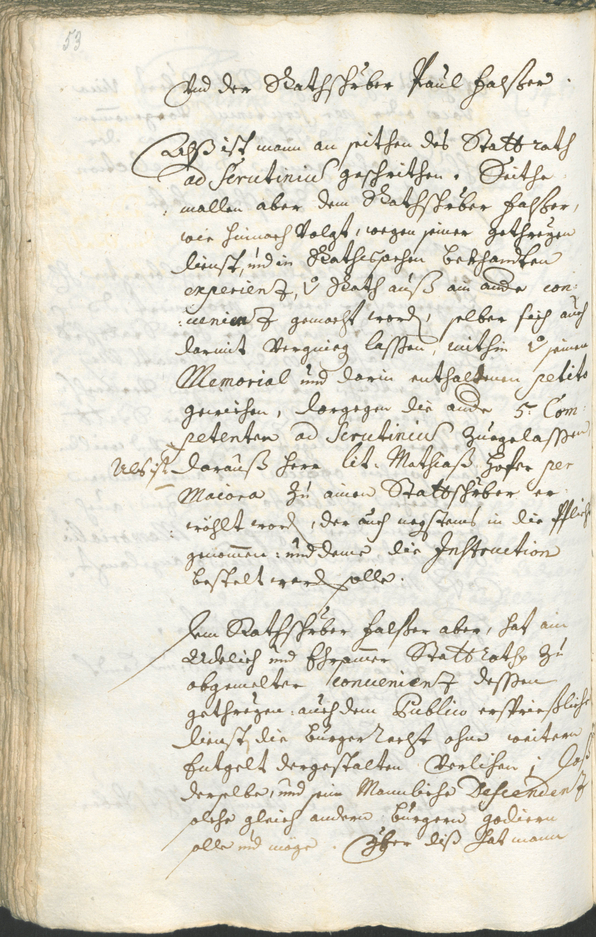 53
Und der Rathschreiber Paul Halßer.
Alß ist mann an seithen des Stattrath
ad Scrutinium geschrithen. Seithe-
mallen aber dem Rathschreiber Halßer,
wie hinnach Volgt, wegen seiner gethreyen
dienst, und in Rathssachen bekhandten
experienz, Rath auß ain ande con-
venienz gemacht word, selber sich auch
darmit Vergnieg lassen, mithin seinem
Memorial und darin enthaltenen petito
gewichen, dargegen die ande 5 Com-
petenten ad Scrutinium zuegelassen,
Als ist darauß Herr lit. Mathiaß Hofer per
Maiora zu ainen Stattschreiber er-
wöhlt word, der auch negstens in die Pflicht
genommen: und deme die Instruction
bestelt werd solle.
Dem Rathschreiber Halßer aber, hat ain
Adelich und Ehrsamer Stattrath zu
obgemelter convenienz dessen
gethreyen: auch dem Publico ersprießliche
dienst, die Bürgerrecht ohne weitern
Entgelt dergestalten Verlihen; daß
derselbe, und sein Mannliche Descendenz
solche gleich andern Bürgern godiern
solle und möge. Yber diß hat mann